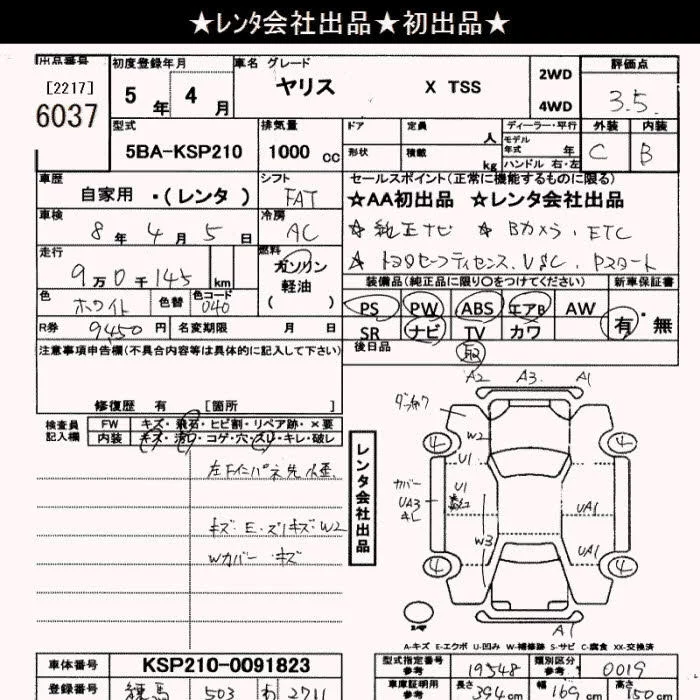 ★レンタ会社出品★初出品★
出品番号
[2217]
6037
初度登録年月
5 年 4 月
車名 グレード
ヤリス X TSS
2WD
4WD
評価点
3.5
型式
5BA-KSP210
排気量
1000 cc
ドア 定員 人
形状 積載 kg
ディーラー・平行
モデル年式 年
ハンドル 右・左
外装 内装
C B
車歴
自家用 ・(レンタ )
シフト
FAT
セールスポイント(正常に機能するものに限る)
☆AA初出品 ☆レンタ会社出品
☆ 純正ナビ ☆ Bカメラ、ETC
☆ トヨタセーフティセンス、VSC、Pスタート
車検
8 年 4 月 5 日
冷房
AC
走行
9万0千145 km
燃料
ガソリン
軽油
( )
色
ホワイト
色替
色コード
040
装備品(純正品に限り○をつけてください)
PS PW ABS エアB AW
SR ナビ TV カワ
新車保証書
有・無
R券 9450 円 名変期限 月 日
後日品
取
注意事項申告欄(不具合内容等は具体的に記入して下さい)
修復歴 有 [箇所 ]
検査員
記入欄
FW キズ・飛石・ヒビ割・リペア跡・×要
内装 キズ・汚れ・コゲ・穴・スレ・キレ・破レ
キズ・E・ズリキズ・W2
Wカバー・キズ
レンタ会社出品
A2 A3 A1
W2
U1
4 4
カバー
UA3
キレ
U1
UA1
W3
UA1
4 4
A1
A-キズ E-エクボ U-凹み W-補修跡 S-サビ C-腐食 XX-交換済
車体番号 KSP210-0091823
型式指定番号
参考
19548
類別区分
参考
0019
登録番号 練馬 503 わ 2711
車庫証明用
参考
長さ 394 cm 幅 169 cm 高さ 150 cm